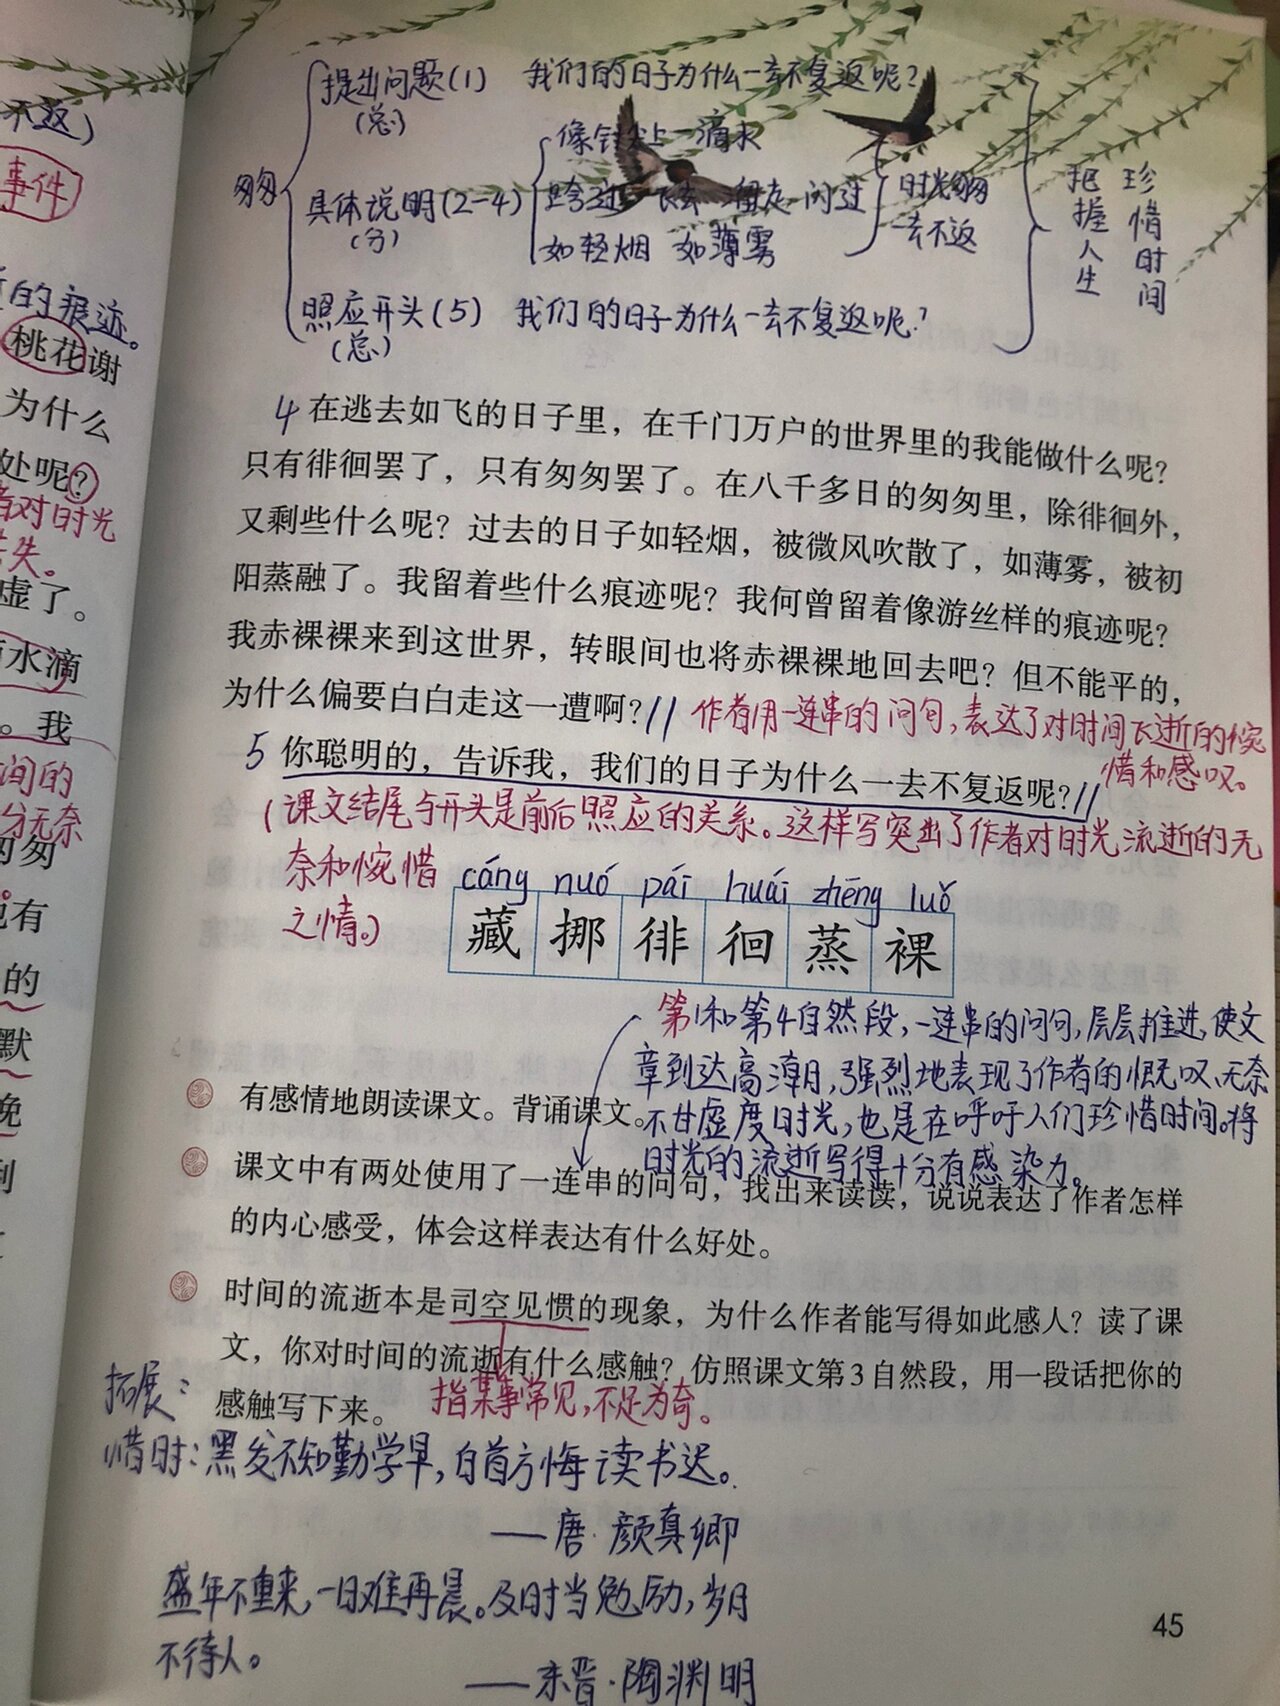 不返)
事件
的痕迹。
桃花谢
为什么
处呢?
者对时光
失。
虚了。
水滴
。我
间的
分无奈
匆匆
也有
的
默
晚
到
提出问题(1) 我们的日子为什么一去不复返呢?
(总)
像针尖上一滴水
匆匆 具体说明(2-4) 跨过 飞去 溜走 闪过 时光匆匆
(分) 如轻烟 如薄雾 一去不返
照应开头(5) 我们的日子为什么一去不复返呢?
(总)
珍惜时间
把握人生
4 在逃去如飞的日子里，在千门万户的世界里的我能做什么呢?
只有徘徊罢了，只有匆匆罢了。在八千多日的匆匆里，除徘徊外，
又剩些什么呢? 过去的日子如轻烟，被微风吹散了，如薄雾，被初
阳蒸融了。我留着些什么痕迹呢? 我何曾留着像游丝样的痕迹呢?
我赤裸裸来到这世界，转眼间也将赤裸裸地回去吧? 但不能平的，
为什么偏要白白走这一遭啊?// 作者用一连串的问句，表达了对时间飞逝的惋
惜和感叹。
5 你聪明的，告诉我，我们的日子为什么一去不复返呢?//
(课文结尾与开头是前后照应的关系。这样写突出了作者对时光流逝的无
奈和惋惜
之情。)
cáng nuó pái huái zhēng luǒ
藏 挪 徘 徊 蒸 裸
第1和第4自然段，一连串的问句，层层推进，使文
章到达高潮，强烈地表现了作者的慨叹、无奈
不甘虚度时光，也是在呼吁人们珍惜时间。将
时光的流逝写得十分有感染力。
有感情地朗读课文。背诵课文。
课文中有两处使用了一连串的问句，找出来读读，说说表达了作者怎样
的内心感受，体会这样表达有什么好处。
时间的流逝本是司空见惯的现象，为什么作者能写得如此感人? 读了课
文，你对时间的流逝有什么感触? 仿照课文第3自然段，用一段话把你的
感触写下来。
指某事常见，不足为奇。
拓展:
惜时: 黑发不知勤学早，白首方悔读书迟。
——唐·颜真卿
盛年不重来，一日难再晨。及时当勉励，岁月
不待人。
——东晋·陶渊明
45